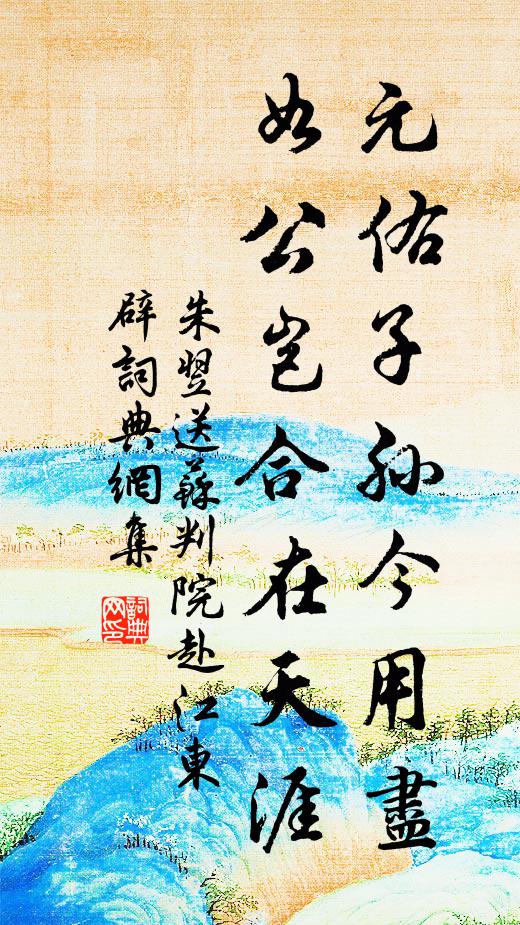 元佑子孫今用盡
如公岂合在天涯
朱翌送蘇判院赴江東
辟詞典網集
詞典网印